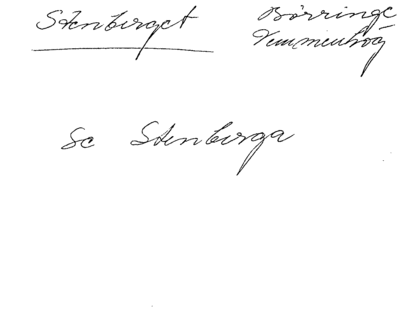 Stenberget
Börringe
Vemmenhög
Se Stenberga